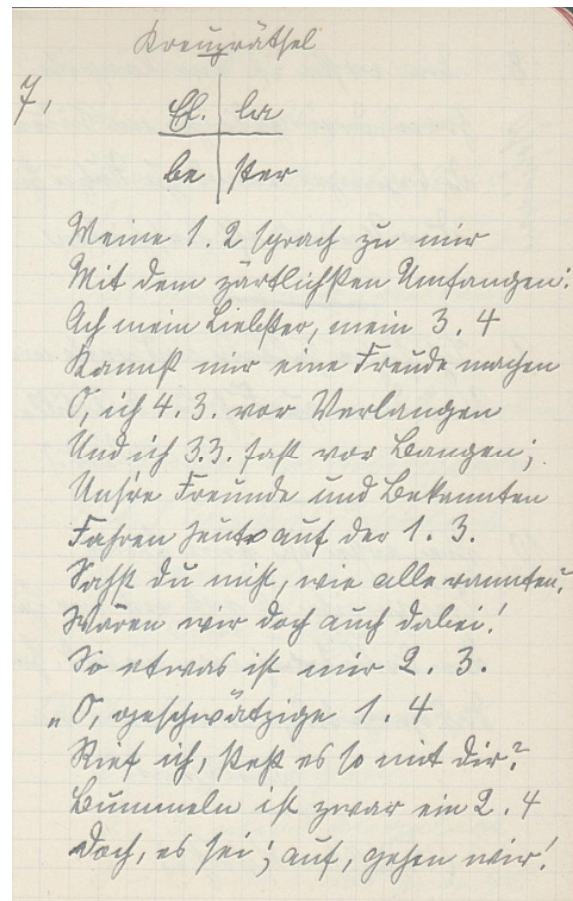 Kreuzrätsel
7,
El. la
be ster
Meine 1. 2 sprach zu mir
Mit dem zärtlichsten Umfangen:
Ach mein Liebster, mein 3. 4
Kannst mir eine Freude machen
O, ich 4. 3. vor Verlangen
Und ich 3.3. fast vor Bangen;
Uns're Freunde und Bekannten
Fahren heute auf der 1. 3.
Sahst du nicht, wie alle rannten?
Wären wir doch auch dabei!
So etwas ist mir 2. 3.
„O, geschwätzige 1. 4
Rief ich, steht es so mit dir?
Bummeln ist zwar ein 2. 4
Doch, es sei; auf, gehen wir!